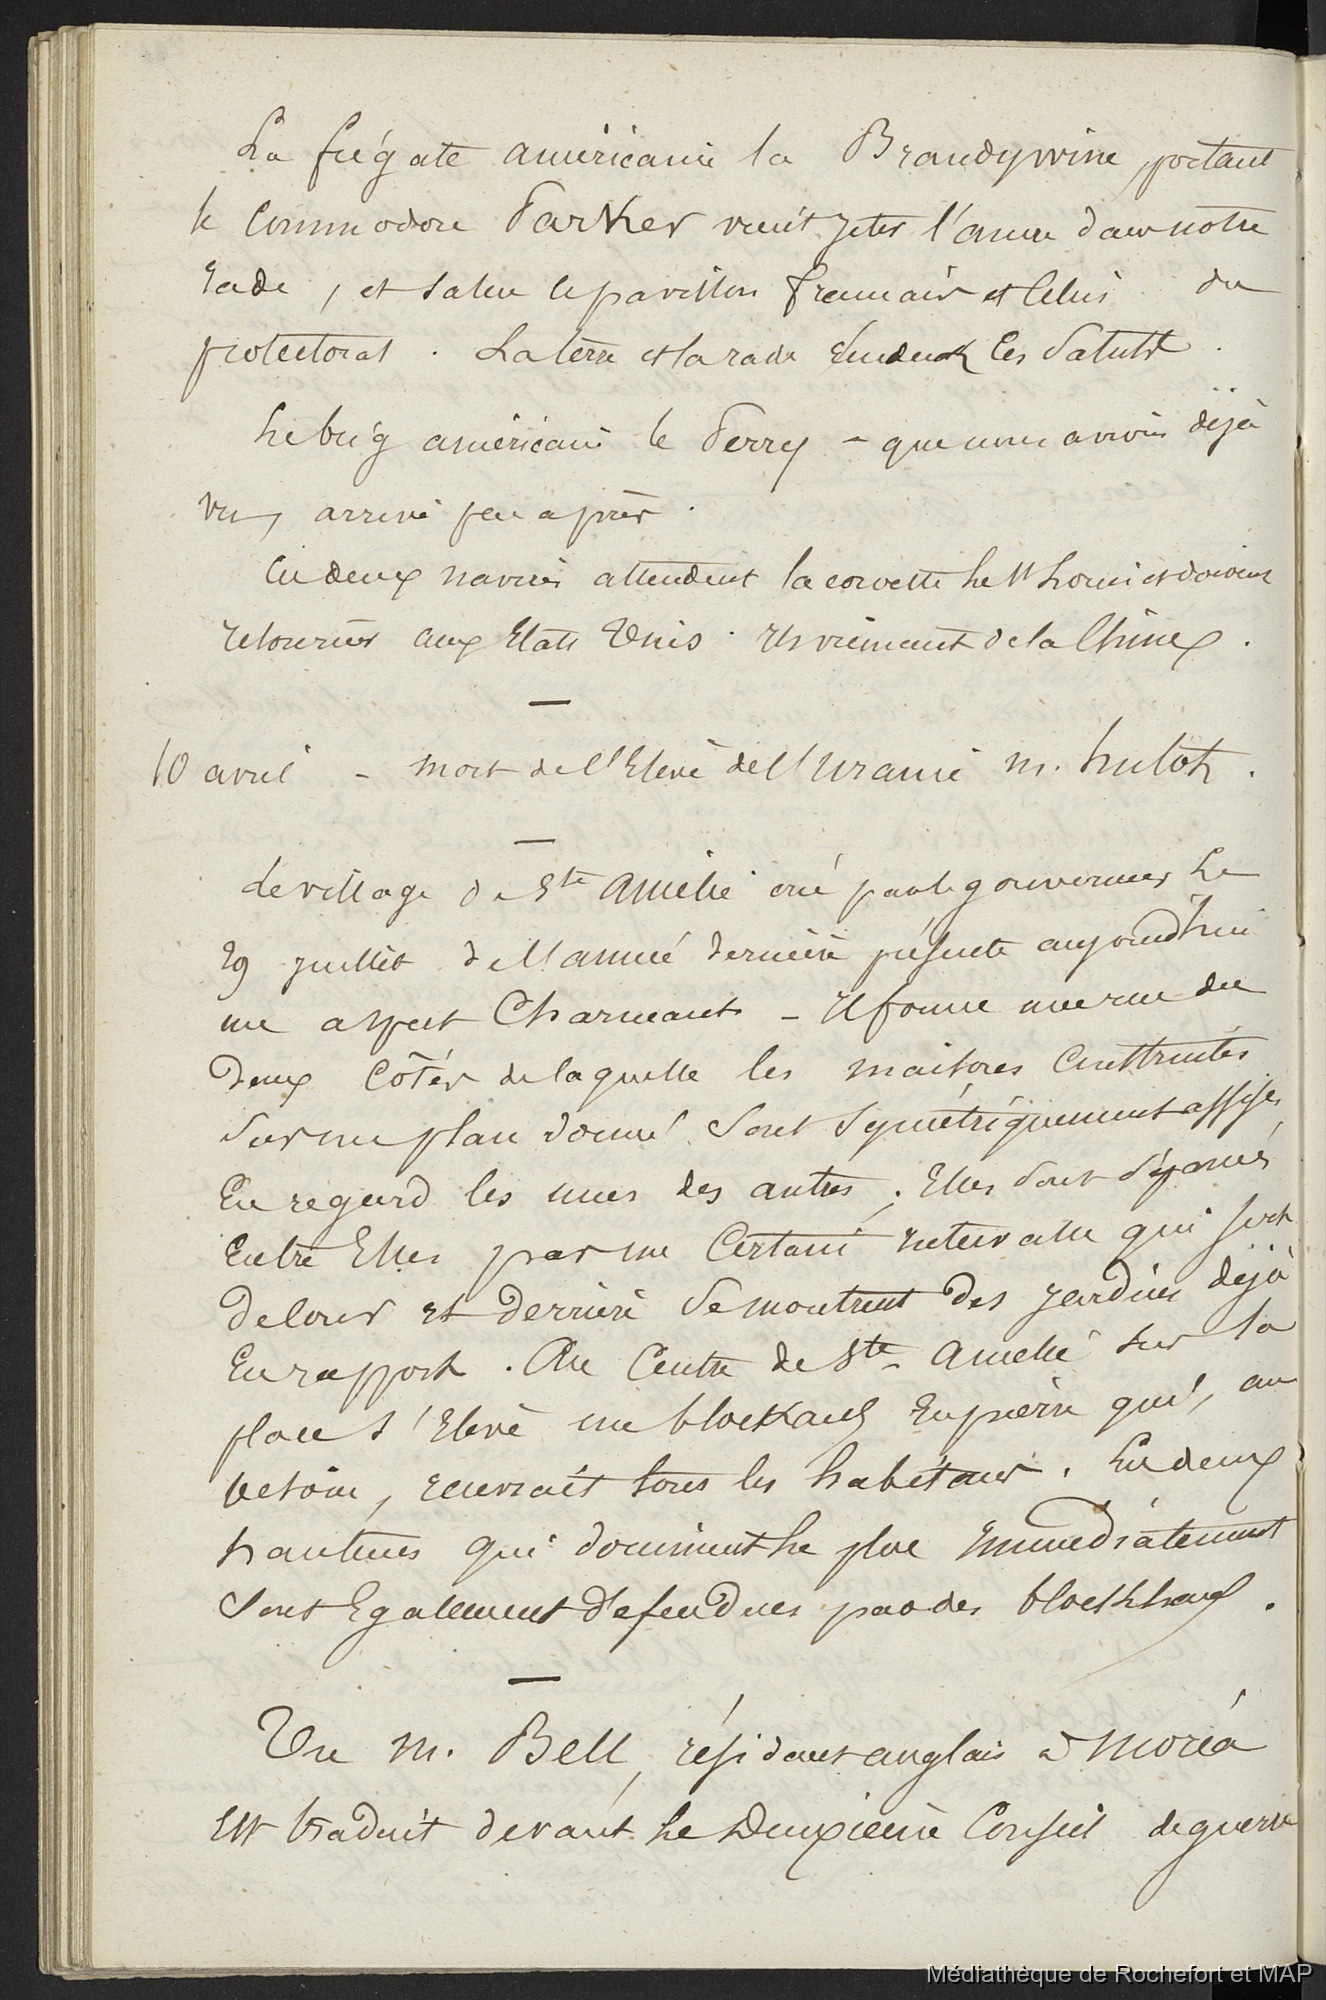 La frégate américaine la Brandywine, portant
le Commodore Parker vient jeter l'ancre dans notre
rade, et salue le pavillon français et celui du
protectorat. La terre et la rade rendent les saluts.
Le brig américain le Perry - que nous avions déjà
vu, arrive peu après.
Ces deux navires attendent la corvette le St Louis et doivent
retourner aux Etats Unis. Ils viennent de la Chine.
10 avril - mort de l'Elève de l'Uranie M. hulot.
Le village de Ste Amélie créé par le gouverneur le
29 juillet de l'année dernière présente aujourd'hui
un aspect Charmant - Il forme une rue des
deux Côtés de laquelle les maisons Construites
Sur un plan donné Sont Symétriquement assises,
En regard les unes des autres. Elles Sont Séparées
Entre Elles par un Certain intervalle qui sert
de cour et derrière Se montrent des jardins déjà
En rapport. Au Centre de Ste Amélie sur la
place s'Elève un blockaus En pierre qui, au
besoin, recevrait tous les habitans. Les deux
hauteurs qui dominent le plus immédiatement
Sont Egalement défendues par des blockhaus.
Un M. Bell, résidant anglais à Moréa
Est traduit devant le Deuxième Conseil de guerre
Médiathèque de Rochefort et MAP